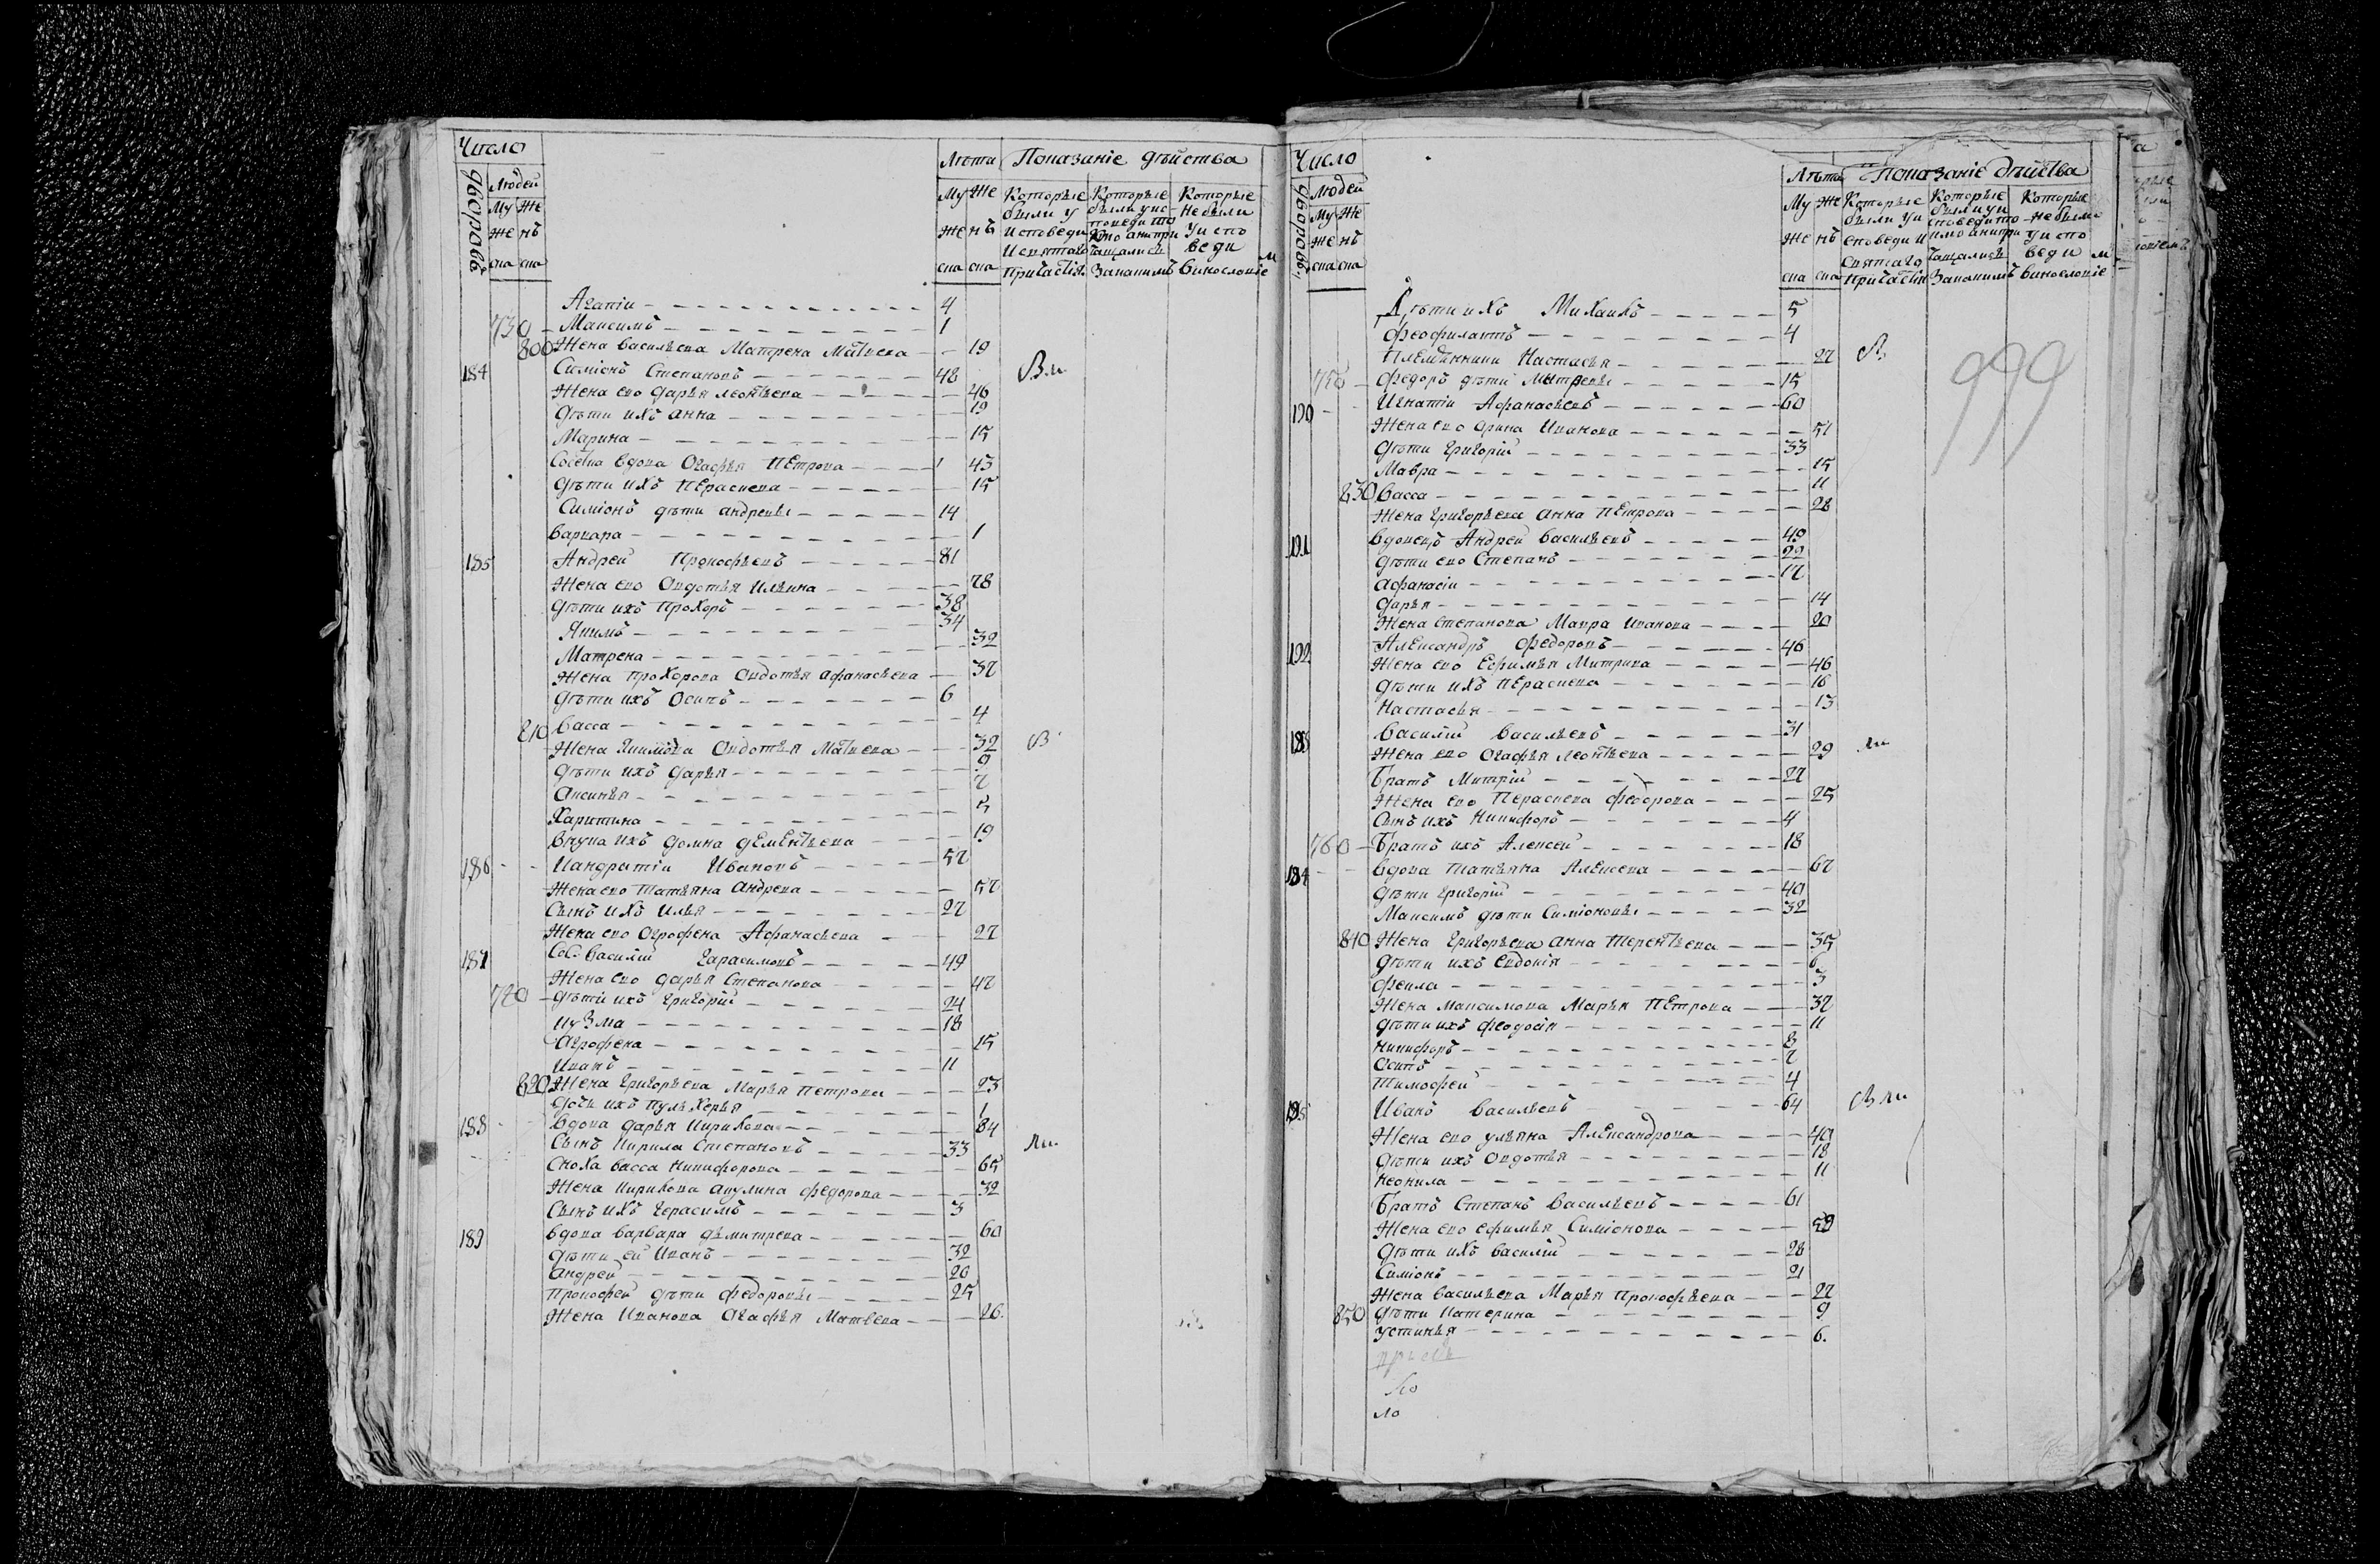 Число
дворовъ
Людей
Му Же
же нъ
ска ска
Лѣта
Му Же
же нъ
ска ска
Показаніе дѣйства
Которые были у исповеди и святаго причастія
Которые были у исповеди токмо а не причащались за каким
Которые не были у исповеди
винословіемъ
Агапіи 4
730 Максимъ 1
800 Жена Васильева Матрена Матвева 19
184 Симіонъ Степановъ 48
Жена ево Дарья Леонтьева 46
Дѣти ихъ Анна 19
Марина 15
вдова Огафья Петрова 43
Дѣти ихъ Пераскева 15
Симіонъ дѣти Андреевы 14
Варвара 1
185 Андрей Прокофьевъ 81
Жена ево Овдотья Ильина 78
Дѣти ихъ Прохоръ 38
Якимъ 34
Матрена 32
Жена Прохорова Овдотья Афанасьева 37
Дѣти ихъ Осипъ 6
810 Васса 4
Жена Якимова Овдотья Матвева 32
Дѣти ихъ Дарья 9
Аксинья 7
Харитина 5
Внука ихъ Домна Дементьева 19
186 Кандратіи Ивановъ 57
Жена ево Татьяна Андрева 57
Сынъ ихъ Илья 27
Жена ево Огрофена Афанасьева 27
187 Василий Гарасимовъ 49
Жена ево Дарья Степанова 47
Дѣти ихъ Григорій 24
Кузма 18
Агрофена 15
Иванъ 11
820 Жена Григорьева Марья Петрова 23
Дочь ихъ Пульхерья 1
188 Вдова Дарья Кирикова 84
Сынъ Кирила Степановъ 33
Сноха Васса Никифорова 65
Жена Кирикова Акулина Федорова 32
Сынъ ихъ Герасимъ 3
189 Вдова Варвара Дѣмитрева 60
Дѣти ей Иванъ 32
Андрей 20
Прокофей дѣти Федоровы 25
Жена Иванова Огафья Матвева 26.
Число
дворовъ
Людей
Му Же
же нъ
ска ска
Лѣта
Му Же
же нъ
ска ска
Показаніе дѣйства
Которые были у исповеди и святаго причастія
Которые были у исповеди токмо а не причащались за каким
Которые не были у исповеди
винословіе
Дѣти ихъ Михаилъ 5
Феофилактъ 4
Племянники Настасья 27
Федоръ дѣти Митревы 15
190 Игнатіи Афанасьевъ 60
Жена ево Орина Иванова 51
Дѣти Григорій 33
Мавра 15
830 Васса 11
Жена Григорьева Анна Петрова 28
191 Вдовецъ Андрей Васильевъ 49
Дѣти ево Степанъ 22
Афанасіи 17
Дарья 14
Жена Степанова Мавра Иванова 20
192 Александръ Федоровъ 46
Жена ево Ефимья Митрива 46
Дѣти ихъ Пераскева 16
Настасья 13
193 Василій Васильевъ 31
Жена ево Огафья Леонтьева 29
Братъ Митрій 27
Жена ево Пераскева Федорова 25
Сынъ ихъ Никифоръ 4
760 Братъ ихъ Алексей 18
194 Вдова Татьяна Алексева 67
Дѣти Григорій 40
Максимъ дѣти Симіоновы 32
840 Жена Григорьева Анна Терентьева 35
Дѣти ихъ Евдокія 6
Фекла 3
Жена Максимова Марья Петрова 37
Дѣти ихъ Феодосія 11
Никифоръ 8
Осипъ 7
Тимофей 4
195 Иванъ Васильевъ 64
Жена ево Ульяна Александрова 40
Дѣти ихъ Овдотья 18
Неонила 11
Братъ Степанъ Васильевъ 61
Жена ево Ефимья Симіонова 59
Дѣти ихъ Василій 28
Симіонъ 21
Жена Васильева Марья Прокофьева 27
850 Дѣти Катерина 9
Устинья 6.
999